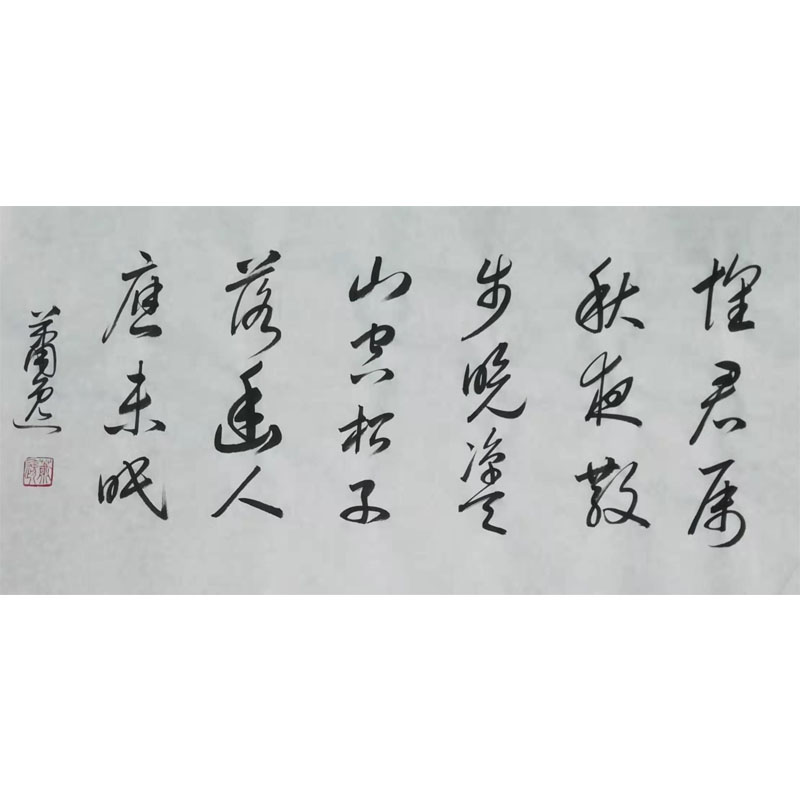 懷君属
秋夜散
步咏凉天
山空松子
落幽人
應未眠
蕭逸